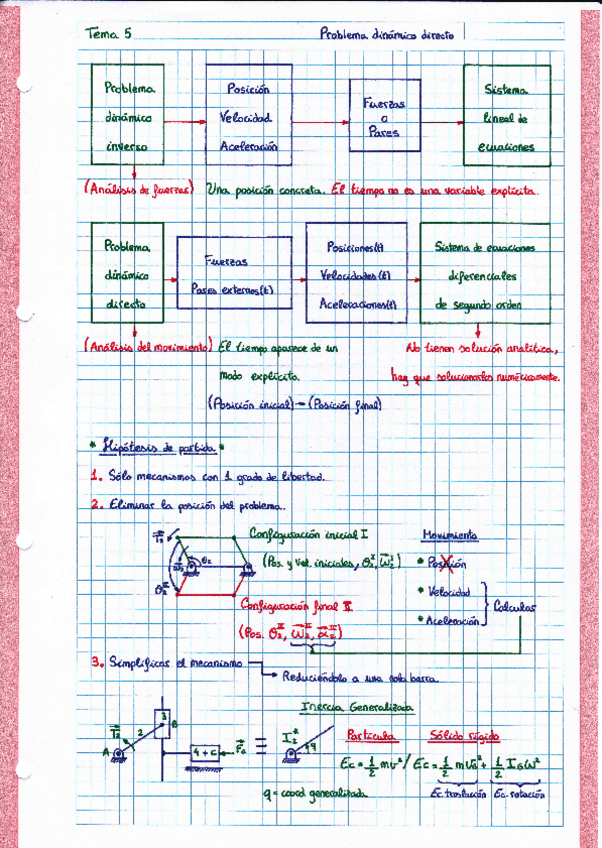 Tema 5 Problema dinámico directo
Problema dinámico inverso
Posición Velocidad Aceleración
Fuerzas o Pares
Sistema lineal de ecuaciones
(Análisis de fuerzas) Una posición concreta. El tiempo no es una variable explícita.
Problema dinámico directo
Fuerzas Pares externos(t)
Posiciones(t) Velocidades(t) Aceleraciones(t)
Sistema de ecuaciones diferenciales de segundo orden
(Análisis del movimiento) El tiempo aparece de un
modo explícito.
No tienen solución analítica,
hay que solucionarlos numéricamente.
(Posición inicial) → (Posición final)
* Hipótesis de partida *
1. Sólo mecanismos con 1 grado de libertad.
2. Eliminar la posición del problema.
Configuración inicial I
(Pos. y Vel. iniciales, θ₂ᴵ, ω₂ᴵ)
θ₂
θ₂ᴵᴵ
Configuración final II
(Pos. θ₂ᴵᴵ, ω₂ᴵᴵ, α₂ᴵᴵ)
Movimiento
* Posición
* Velocidad
* Aceleración
Calcular
3. Simplificar el mecanismo
Reduciéndolo a una sola barra.
Inercia Generalizada
T₂
A
2
3
B
4 + C
=
I₂*
q
q = coord generalizada
Partícula Sólido rígido
Ec = 1/2 mv² / Ec = 1/2 m v_G² + 1/2 I_G ω²
Ec. traslación Ec. rotación